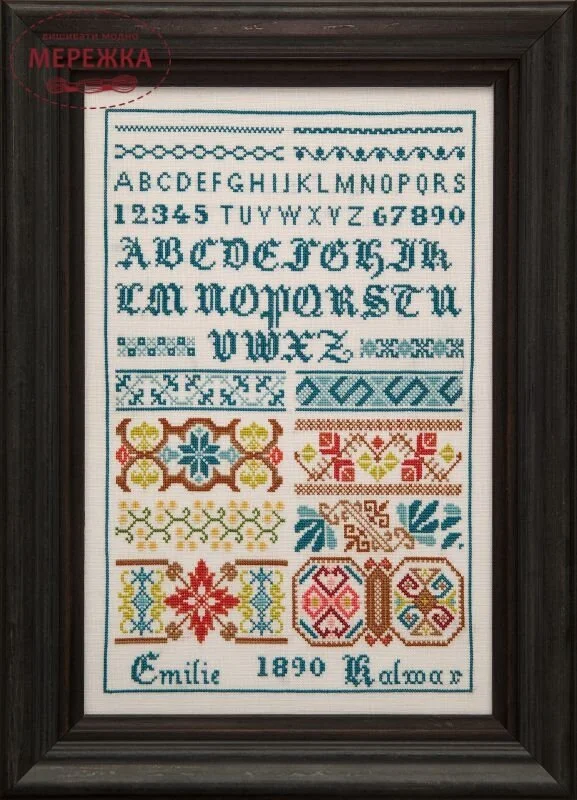 вишивати модно
МЕРЕЖКА
ABCDEFGHIJKLMNOPQRS
12345 TUVWXYZ 67890
ABCDEFGHIK
LMNOPQRSTU
VWXZ
Emilie 1890 Kalwar